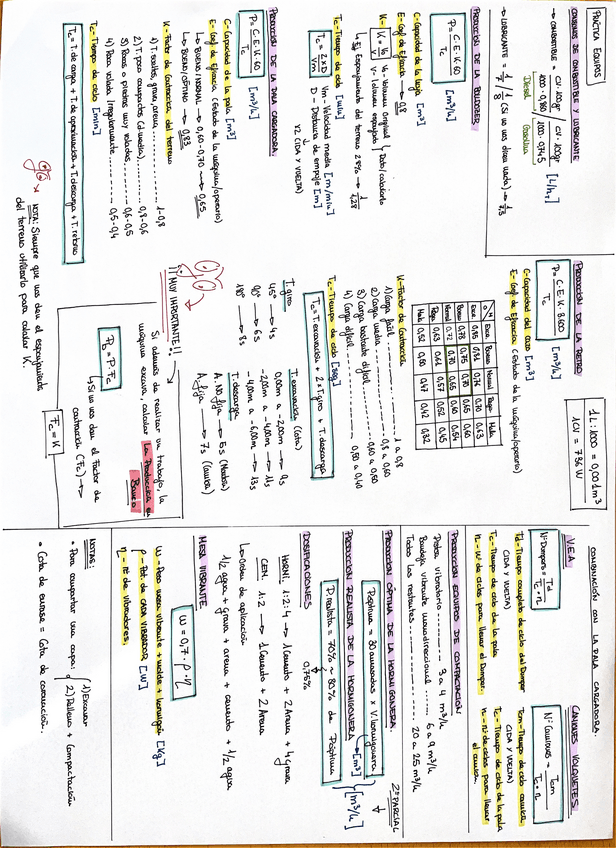 PRÁCTICA EQUIPOS
CONSUMOS DE COMBUSTIBLE Y LUBRICANTE
→ COMBUSTIBLE = CV·200gr / 1000·0'850 / CV·200gr / 1000·0'745 [L/h]
Diesel Gasolina
→ LUBRICANTE = 1/7 / 1/8 (Si no nos dicen nada) → 1/7,5
PRODUCCIÓN DE LA BULLDOZER
P = C·E·K·60 / Tc [m³/h]
C - Capacidad de la cuchilla [m³]
E - Coef de Eficacia → 0,8
K = V₀/V₁ V₀ - Volumen Original V₁ - Volumen esponjado } Dato/calcularlo
↳ Ej El esponjamiento del terreno 28% → 1/1,28
Tc - Tiempo de ciclo [min]
Tc = 2×D / Vm Vm - Velocidad media [m/min]
D - Distancia de empuje [m]
×2 (IDA Y VUELTA)
PRODUCCIÓN DE LA PALA CARGADORA.
P = C·E·K·60 / Tc [m³/h]
C - Capacidad de la pala [m³]
E - Coef de Eficacia (Estado de la máquina/operario)
↳ BUENO/NORMAL → 0,60-0,70 → 0,65
↳ BUENO/ÓPTIMO → 0,83
K - Factor de Contracción del terreno
1) T. sueltos, grava, arena 1-0,8
2) T. poco compactos (d. media) 0,8-0,6
3) Rocas o piedras muy voladas 0,6-0,5
4) Roca volada irregularmente 0,5-0,4
Tc - Tiempo de ciclo [min]
Tc = T. de carga + T. de aproximación + T. descarga + T. retorno
NOTA: Siempre que nos den el esponjamiento
del terreno utilizarlo para calcular K.
1L : 1000 = 0,001 m³
1CV = 736 W
PRODUCCIÓN DE LA RETRO
P = C·E·K·3.600 / Tc [m³/h]
C - Capacidad del cazo [m³]
E - Coef. de Eficacia (Estado de la máquina/operario)
O\M Exce. Buena Normal Regu. Mala
Exce. 0,83 0,81 0,76 0,70 0,63
Buena 0,78 0,75 0,71 0,65 0,60
Normal 0,72 0,70 0,65 0,60 0,54
Regu. 0,63 0,61 0,57 0,52 0,45
Mala 0,52 0,50 0,47 0,42 0,32
K - Factor de Contracción
1) Carga fácil 1 a 0,8
2) Carga media 0,8 a 0,60
3) Carga bastante difícil 0,60 a 0,50
4) Carga difícil 0,50 a 0,40
Tc - Tiempo de ciclo [seg]
Tc = T. excavación + 2×T. giro + T. descarga
T. giro
45º → 4s
90º → 6s
180º → 8s
T. excavación (Cota)
0,00m a -2,00m → 9s
-2,00m a -4,00m → 11s
-4,00m a -6,00m → 13s
T. descarga
A. No fija → 5s (Montón)
A. fija → 7s (Camión)
¡¡ MUY IMPORTANTE !!
Si además de realizar un trabajo la
máquina excava, calcular La Producción en
Banco
Pb = P·Fc
↳ Si no nos dan el Factor de
contracción (Fc) →
Fc = K
COMBINACIÓN CON LA PALA CARGADORA.
V.E.A.
Nº Dumpers = Td / Tc·n
Td - Tiempo completo de ciclo del Dumper
(IDA Y VUELTA)
Tc - Tiempo de ciclo de la pala
n - Nº de ciclos para llenar el Dumper.
CAMIONES VOLQUETES
Nº Camiones = Tcm / Tc·n
Tcm - Tiempo de ciclo camión
(IDA Y VUELTA)
Tc - Tiempo de ciclo de la pala
n - nº de ciclos para llenar
el camión.
PRODUCCIÓN EQUIPOS DE COMPACTACIÓN
Pisón vibratorio 3 a 4 m³/h
Bandeja vibrante unidireccional 6 a 9 m³/h
Todos los restantes 20 a 25 m³/h
2º PARCIAL
PRODUCCIÓN ÓPTIMA DE LA HORMIGONERA.
Póptima = 30 amasadas × V. hormigonera
↳ [m³]
PRODUCCIÓN REALISTA DE LA HORMIGONERA
P. realista = 70% ~ 80% de Póptima
0,75%
[m³/h]
DOSIFICACIONES
HORMI. 1:2:4 → 1 Cemento + 2 Arena + 4 grava
CEM. 1:2 → 1 Cemento + 2 Arena
↳ Orden de aplicación
1/2 agua + grava + arena + cemento + 1/2 agua
MESA VIBRANTE
W = 0,7·ρ·η
W - Peso mesa vibrante + molde + hormigón [Kg]
ρ - Pot. de CADA VIBRADOR [W]
η - nº de vibradores.
NOTAS:
• Para compactar una capa: { 1) Excavar
2) Relleno + Compactación
• Cota de enrase = Cota de coronación.